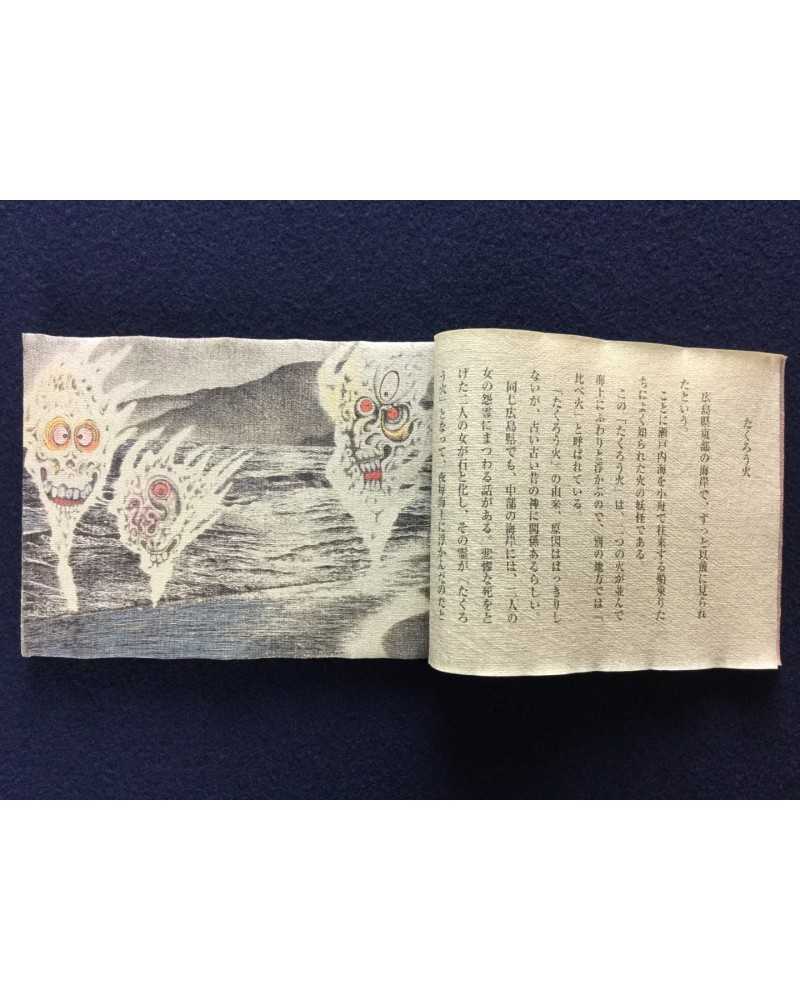 たくろう火
広島県東部の海岸で、ずっと以前に見られ
たという。
ことに瀬戸内海を小舟で往来する船乗りた
ちによく知られた火の妖怪である
この「たくろう火」は、二つの火が並んで
海上にふわりと浮かぶので、別の地方では「
比べ火」と呼ばれている
「たくろう火」の由来、原因ははっきりし
ないが、古い古い昔の神に関係あるらしい。
同じ広島県でも、中部の海岸には、二人の
女の怨霊にまつわる話がある。悲惨な死をと
げた二人の女が石と化し、その霊が「たくろ
う火」となって、夜毎海上に浮かんだのだと